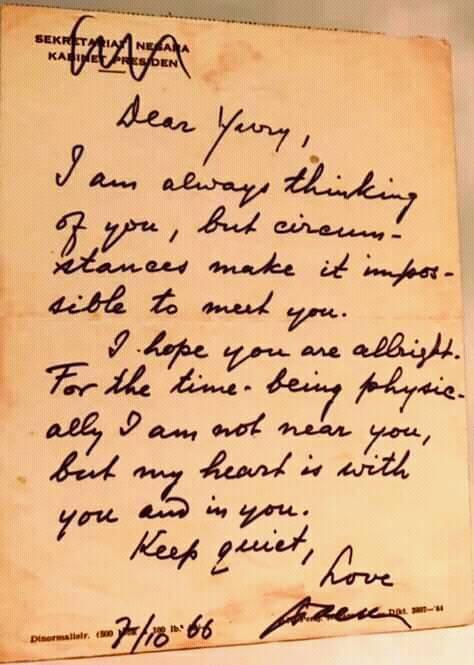 SEKRETARIAT NEGARA
KABINET PRESIDEN
Dear Yurry,
I am always thinking
of you, but circum-
stances make it impos-
sible to meet you.
I hope you are allright.
For the time-being physic-
ally I am not near you,
but my heart is with
you and in you.
Keep quiet,
Love
7/10 66
Dinormalisir. (500 100 lb.
Dikt. 2807-'64